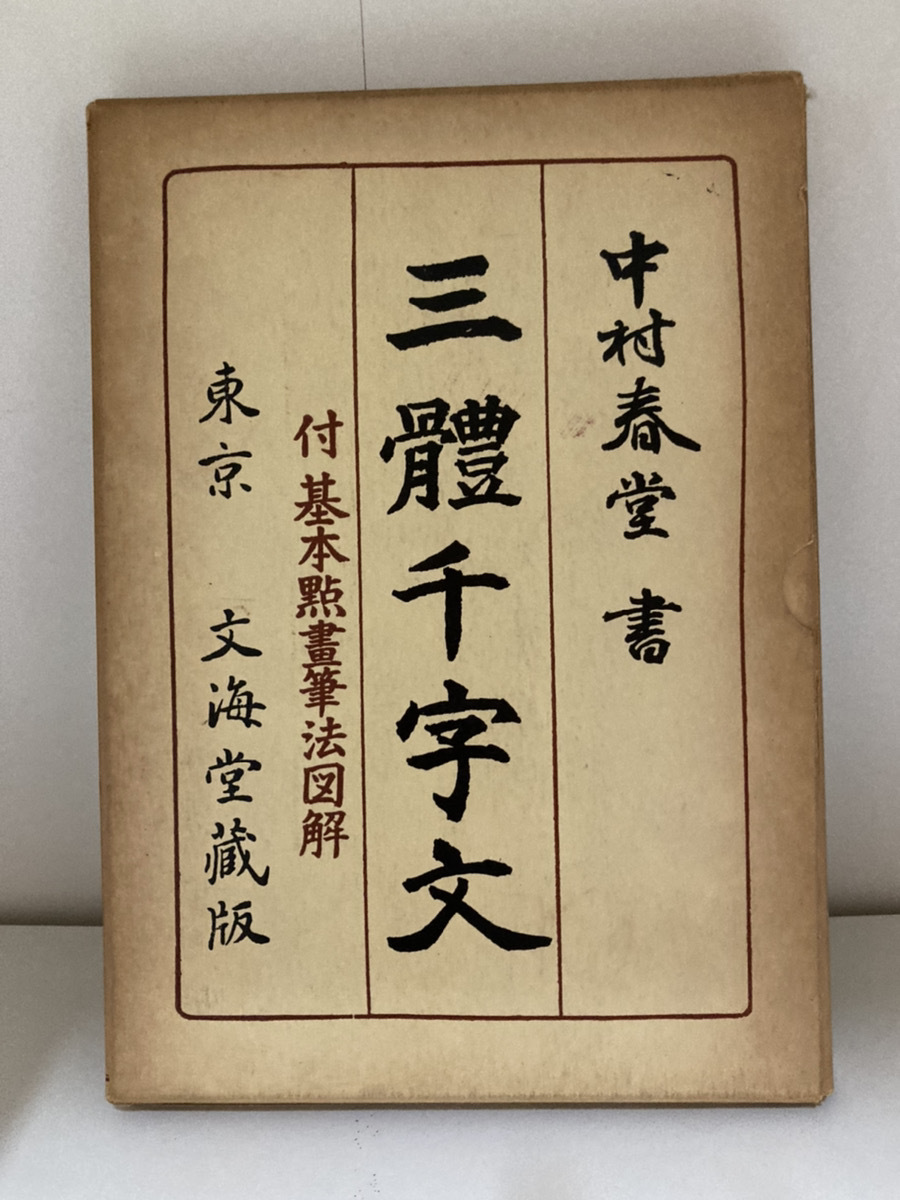 中村春堂 書
三體千字文
付 基本點畫筆法図解
東京 文海堂藏版